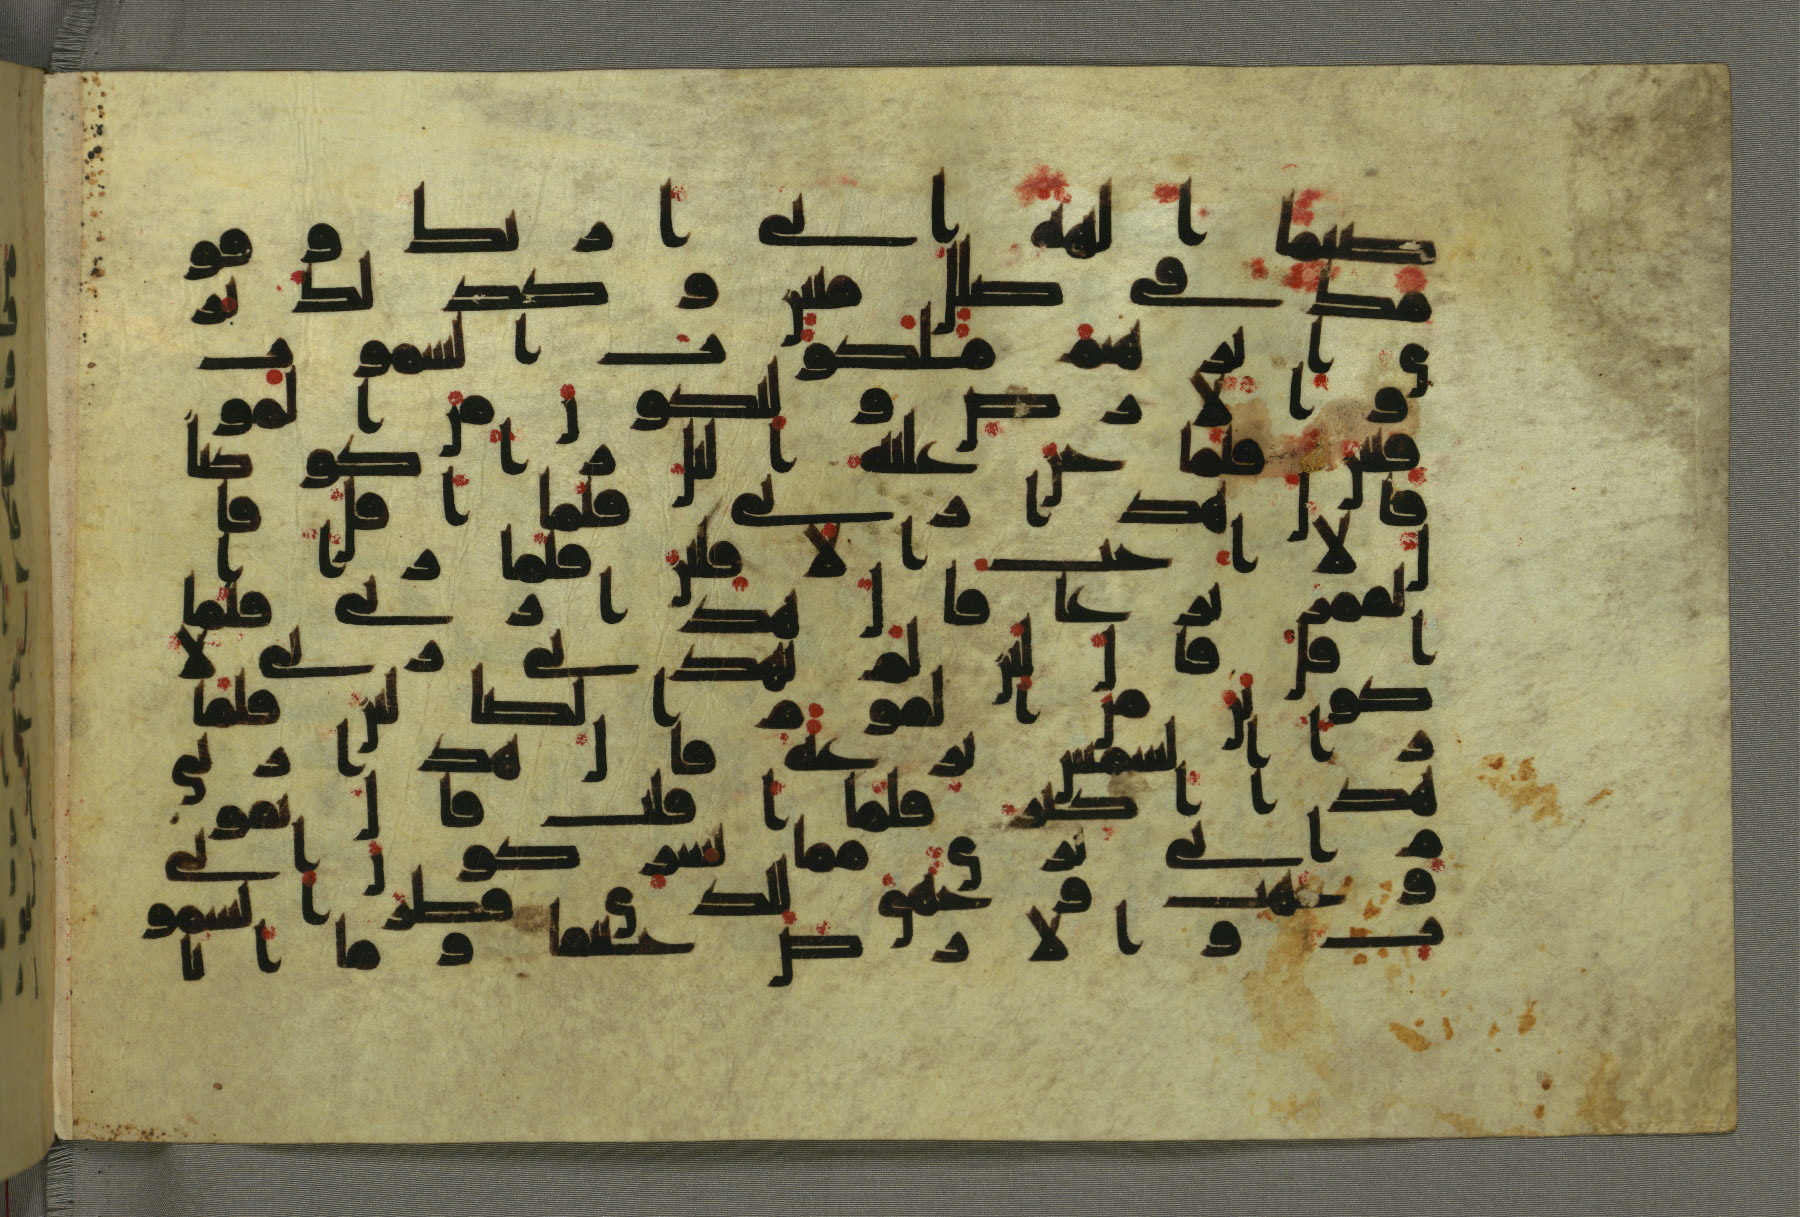 صنما الهة اني اريك و قو
مك في ضلل مبين و كذلك نر
ي ابرهيم ملكوت السمو ت
و الارض و ليكون من المو
قنين فلما جن عليه اليل را كوكبا
قال هذا ربي فلما افل قا
ل لا احب الافلين فلما را ا
لقمر بازغا قال هذا ربي فلما
افل قال لئن لم يهدني ربي لا
كونن من القوم الضالين فلما
را الشمس بازغة قال هذا ربي
هذا اكبر فلما افلت قال يقو
م اني بري مما تشركون اني
وجهت وجهي للذي فطر السمو
ت و الارض حنيفا و ما انا